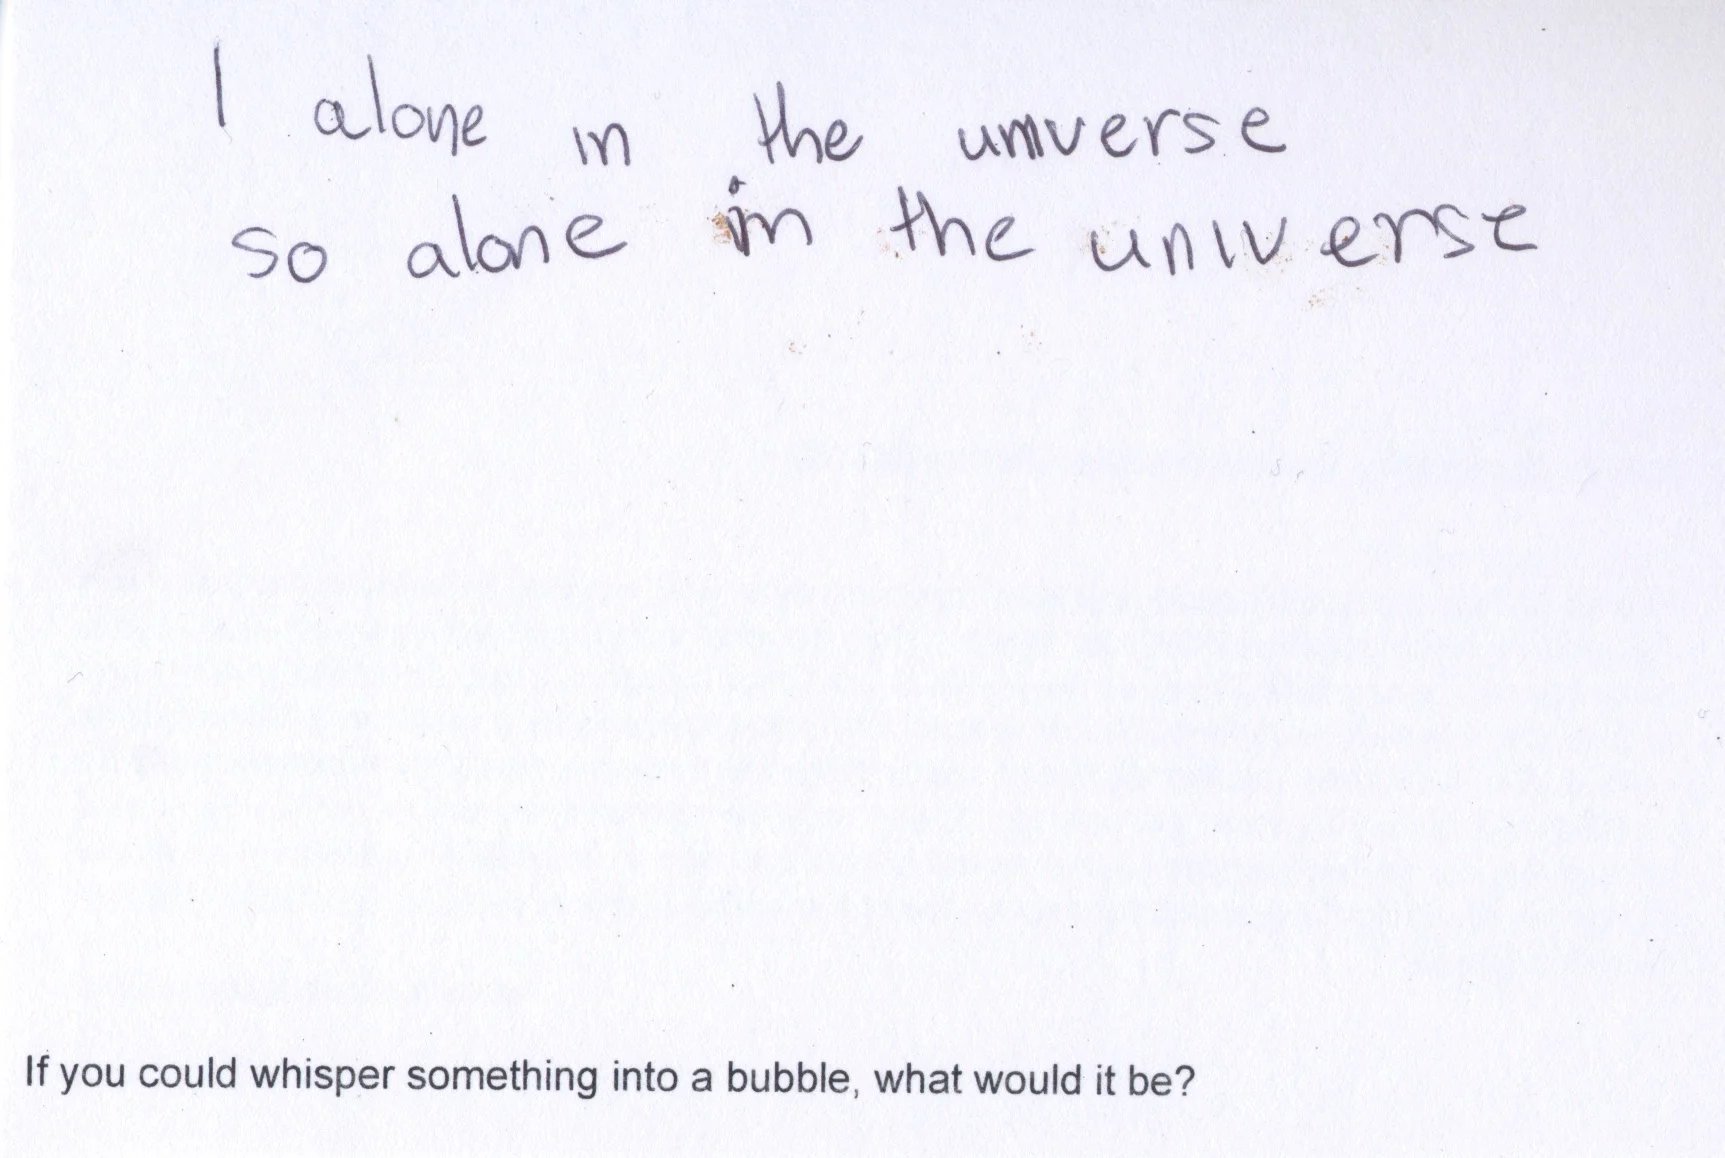 I alone in the universe
so alone in the universe
If you could whisper something into a bubble, what would it be?